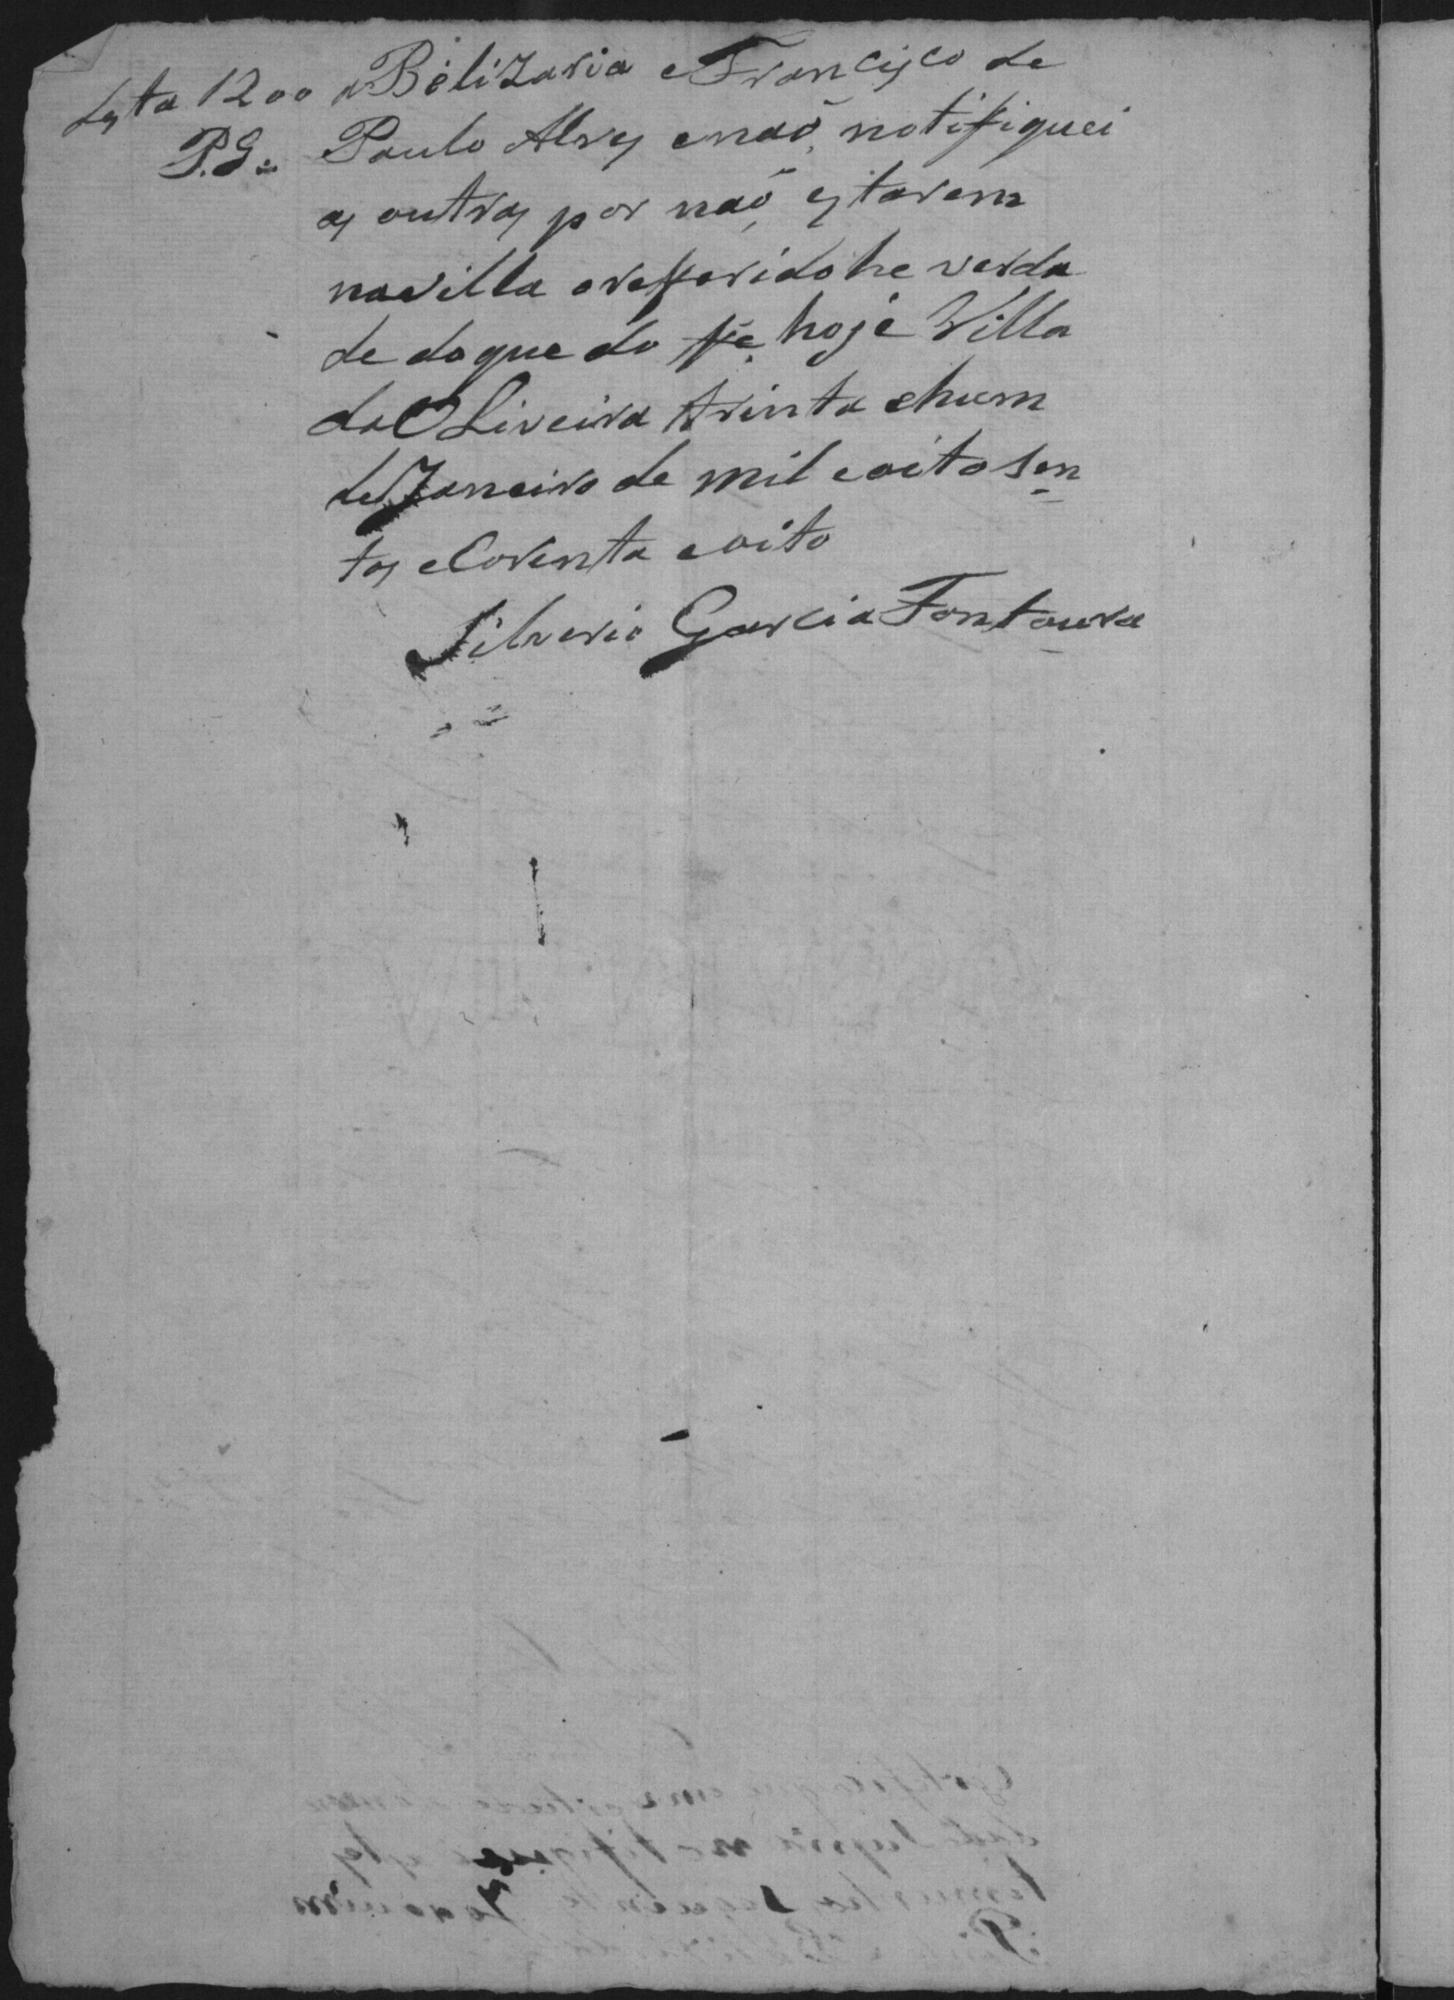 desta 1200 a Belizaria e Francisco de
P.G. Paulo Alves e naõ notifiquei
as outras por naõ estarem
na villa o refferido he verda
de do que do ffe hoje Villa
da OLiveira trinta e hum
de Janeiro de mil e oito sen
tos e Corenta e oito
Silverio Garcia Fontoura